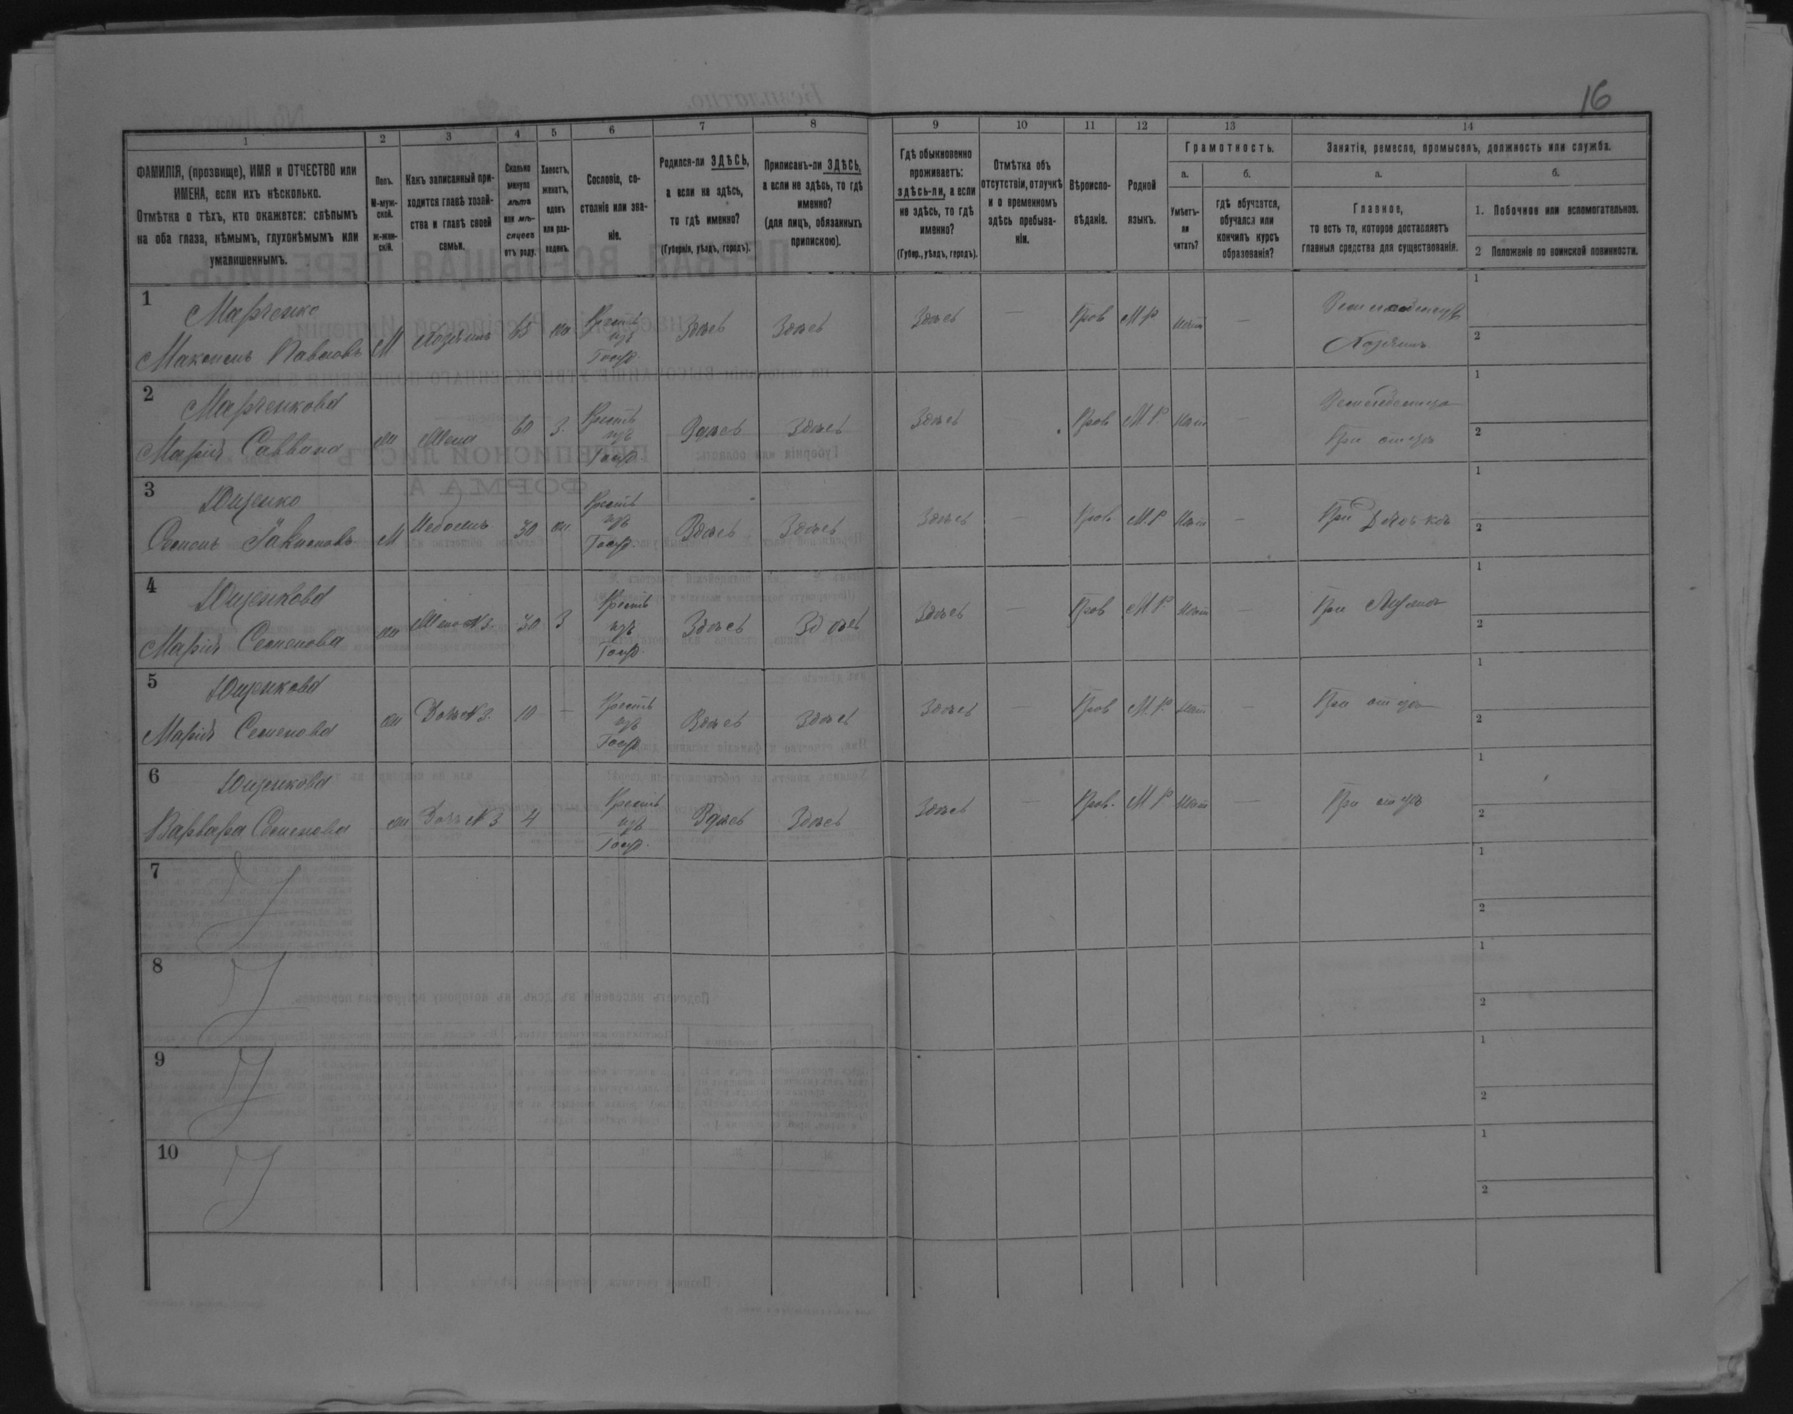 16
1 2 3 4 5 6 7 8 9 10 11 12 13 14
ФАМИЛІЯ, (прозвище), ИМЯ и ОТЧЕСТВО или
ИМЕНА, если ихъ нѣсколько.
Отмѣтка о тѣхъ, кто окажется: слѣпымъ
на оба глаза, нѣмымъ, глухонѣмымъ или
умалишеннымъ.
Полъ.
М-муж-
ской.
ж-жен-
скій.
Какъ записанный при-
ходится главѣ хозяй-
ства и главѣ своей
семьи.
Сколько
минуло
лѣтъ
или мѣ-
сяцевъ
отъ роду.
Холостъ,
женатъ,
вдовъ
или раз-
веденъ.
Сословіе, со-
стояніе или зва-
ніе.
Родился-ли ЗДѢСЬ,
а если не здѣсь,
то гдѣ именно?
(Губернія, уѣздъ, городъ).
Приписанъ-ли ЗДѢСЬ,
а если не здѣсь, то гдѣ
именно?
(для лицъ, обязанныхъ
припискою).
Гдѣ обыкновенно
проживаетъ:
здѣсь-ли, а если
не здѣсь, то гдѣ
именно?
(Губер., уѣздъ, городъ).
Отмѣтка объ
отсутствіи, отлучкѣ
и о временномъ
здѣсь пребыва-
ніи.
Вѣроиспо-
вѣданіе.
Родной
языкъ.
Грамотность.
а.
Умѣетъ-
ли
читать?
б.
гдѣ обучается,
обучался или
кончилъ курсъ
образованія?
Занятіе, ремесло, промыселъ, должность или служба.
а.
Главное,
то есть то, которое доставляетъ
главныя средства для существованія.
б.
1. Побочное или вспомогательное.
2 Положеніе по воинской повинности.
1 Марченко
Максимъ Павловъ М Хозяинъ 65 жн Крестъ изъ Госуд. Здѣсь Здѣсь Здѣсь — Прав М.Р. нѣт — Хозяинъ 1 2
2 Марченкова
Марія Саввина жн Жена 60 З. Крестъ изъ Госуд. Здѣсь Здѣсь Здѣсь — Прав М.Р. нѣт — При отцѣ 1 2
3 Ющенко
Семенъ М 30 жн. Крестъ изъ Госуд. Здѣсь Здѣсь Здѣсь — Прав. М.Р. нѣт — При 1 2
4 Ющенкова
Марія Семенова жн Жена №3. 30 З Крестъ изъ Госуд. Здѣсь Здѣсь Здѣсь — Прав М.Р. нѣт — При Мужѣ 1 2
5 Ющенкова
Марія Семенова жн Дочь №3. 10 — Крестъ изъ Госуд. Здѣсь Здѣсь Здѣсь — Прав М.Р. нѣт — При отцѣ 1 2
6 Ющенкова
Варвара Семенова жн Дочь №3 4 Крестъ изъ Госуд. Здѣсь Здѣсь Здѣсь — Прав. М.Р. нѣт — При отцѣ 1 2
7 1 2
8 1 2
9 1 2
10 1 2